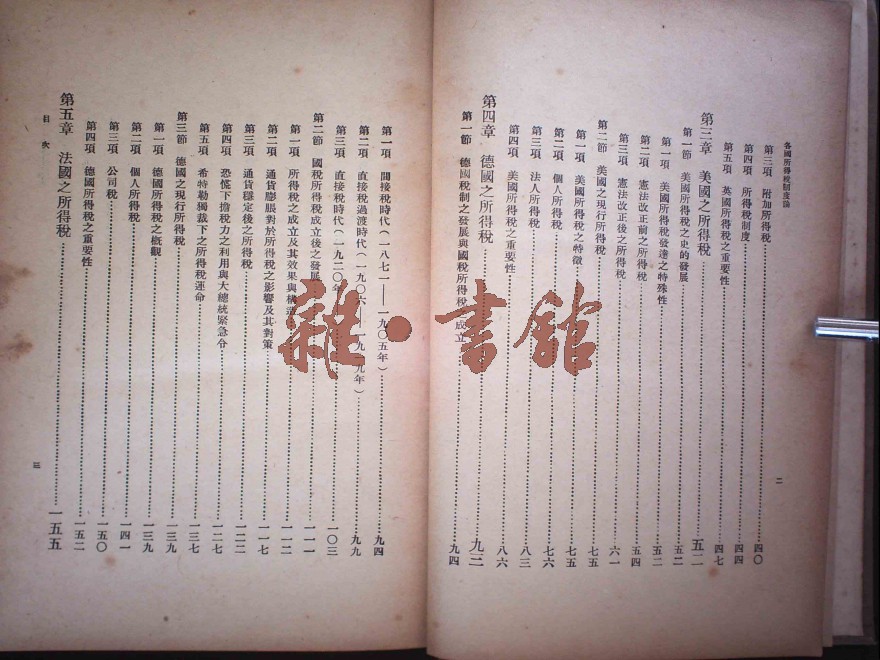 各國所得稅制度論
二
第三項 附加所得稅 四〇
第四項 所得稅制度 四四
第五項 英國所得稅之重要性 四七
第三章 美國之所得稅 五二
第一節 美國所得稅之史的發展 五二
第一項 美國所得稅發達之特殊性 五二
第二項 憲法改正前之所得稅 五四
第三項 憲法改正後之所得稅 六一
第二節 美國之現行所得稅 七五
第一項 美國所得稅之特徵 七五
第二項 個人所得稅 七六
第三項 法人所得稅 八三
第四項 美國所得稅之重要性 八六
第四章 德國之所得稅 九三
第一節 德國稅制之發展與國稅所得稅 成立 九四
第一項 間接稅時代(一八七一——一九〇五年) 九四
第二項 直接稅過渡時代(一九〇六——一九一九年) 九九
第三項 直接稅時代(一九二〇年 一〇三
第二節 國稅所得稅成立後之發展 一一一
第一項 所得稅之成立及其效果與構造 一一二
第二項 通貨膨脹對於所得稅之影響及其對策 一一七
第三項 通貨穩定後之所得稅 一二二
第四項 恐慌下擔稅力之利用與大總統緊急令 一二七
第五項 希特勒獨裁下之所得稅運命 一三七
第三節 德國之現行所得稅 一三九
第一項 德國所得稅之概觀 一三九
第二項 個人所得稅 一四一
第三項 公司稅 一五〇
第四項 德國所得稅之重要性 一五二
第五章 法國之所得稅 一五五
目次
三
雜·書館